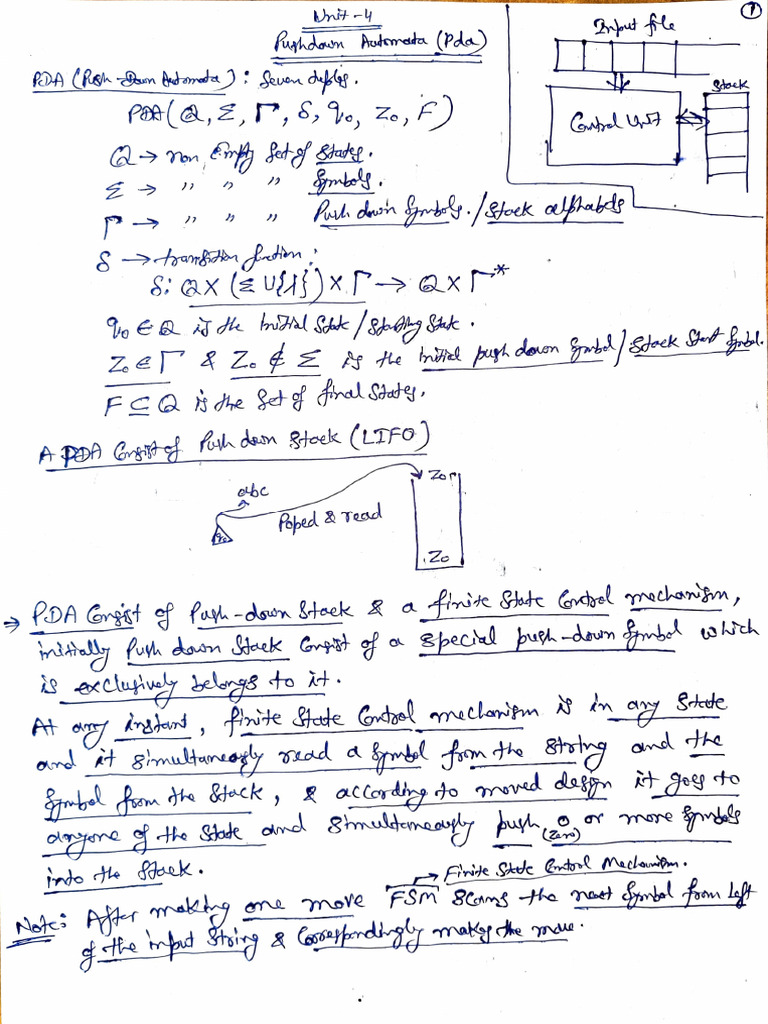 Unit-4
Pushdown Automata (Pda)
①
Input file
Stack
Control Unit
PDA (Push-Down Automata): Seven tuples.
PDA(Q, Σ, Γ, δ, q₀, Z₀, F)
Q → non empty set of States.
Σ → " " " Symbols.
Γ → " " " Push down Symbols. / Stack alphabets
δ → transition function:
δ: Q X (Σ U {λ}) X Γ → Q X Γ*
q₀ ∈ Q is the initial State / Starting State.
Z₀ ∈ Γ & Z₀ ∉ Σ is the initial push down Symbol / Stack Start Symbol.
F ⊆ Q is the set of final States.
A PDA Consist of Push down Stack (LIFO)
abc
Poped & read
Z₀
Z₀
→ PDA Consist of Push-down Stack & a finite State Control mechanism,
initially Push down Stack Consist of a special push-down Symbol which
is exclusively belongs to it.
At any instant, finite State Control mechanism is in any State
and it simultaneously read a Symbol from the String and the
Symbol from the Stack, & according to moved design it goes to
anyone of the State and simultaneously push 0 or more Symbols
(Zero)
into the Stack.
→ Finite State Control Mechanism.
Note: After making one move FSM Scans the next Symbol from left
of the input String & Correspondingly makes the move.